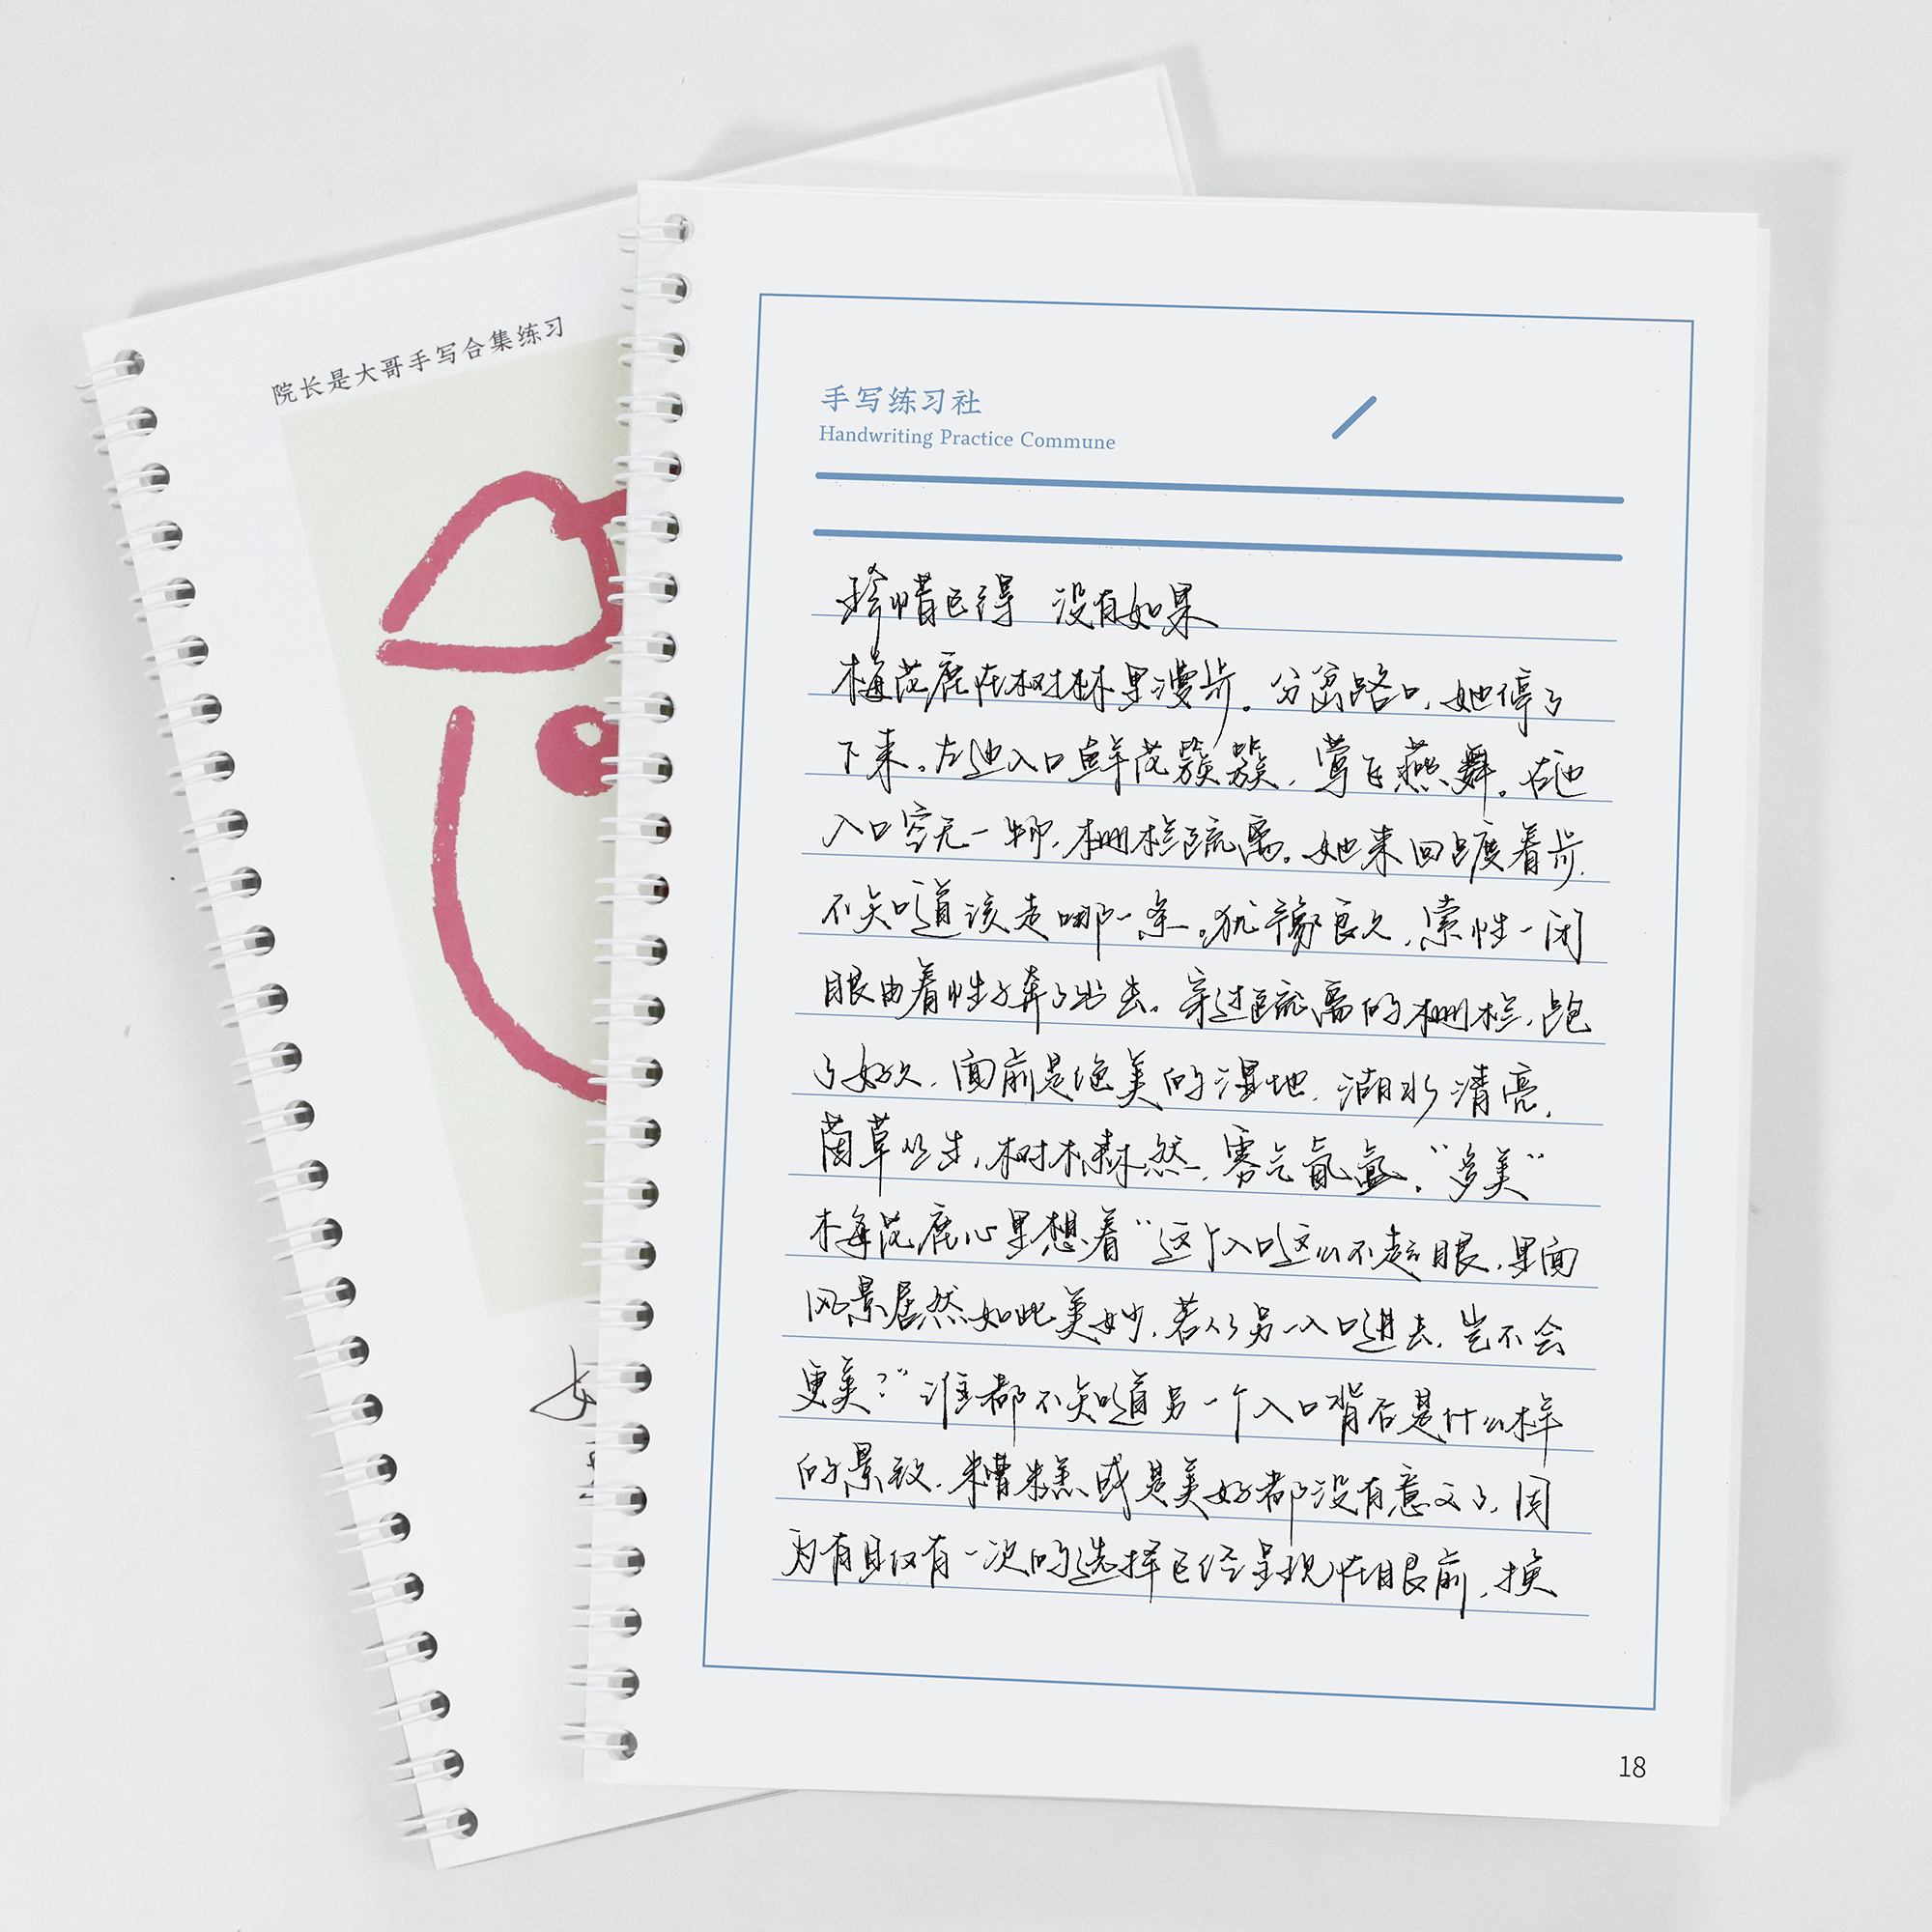 院长是大哥手写合集练习
手写练习社
Handwriting Practice Commune
珍惜已得 没有如果
梅花鹿在树林里漫步。分岔路口,她停了
下来。左边入口鲜花簇簇,莺飞燕舞。右边
入口空无一物,栅栏疏离。她来回踱着步,
不知道该走哪一条。犹豫良久,索性一闭
眼由着性子奔了出去。穿过疏离的栅栏,跑
了好久,面前是绝美的湿地,湖水清亮,
菌草丛生,树木森然,雾气氤氲。“多美”
梅花鹿心里想着“这个入口这么不起眼,里面
风景居然如此美妙,若从另一入口进去,岂不会
更美?”谁都不知道另一个入口背后是什么样
的景致,糟糕或是美好都没有意义了,因
为有且仅有一次的选择已经呈现在眼前,换
18